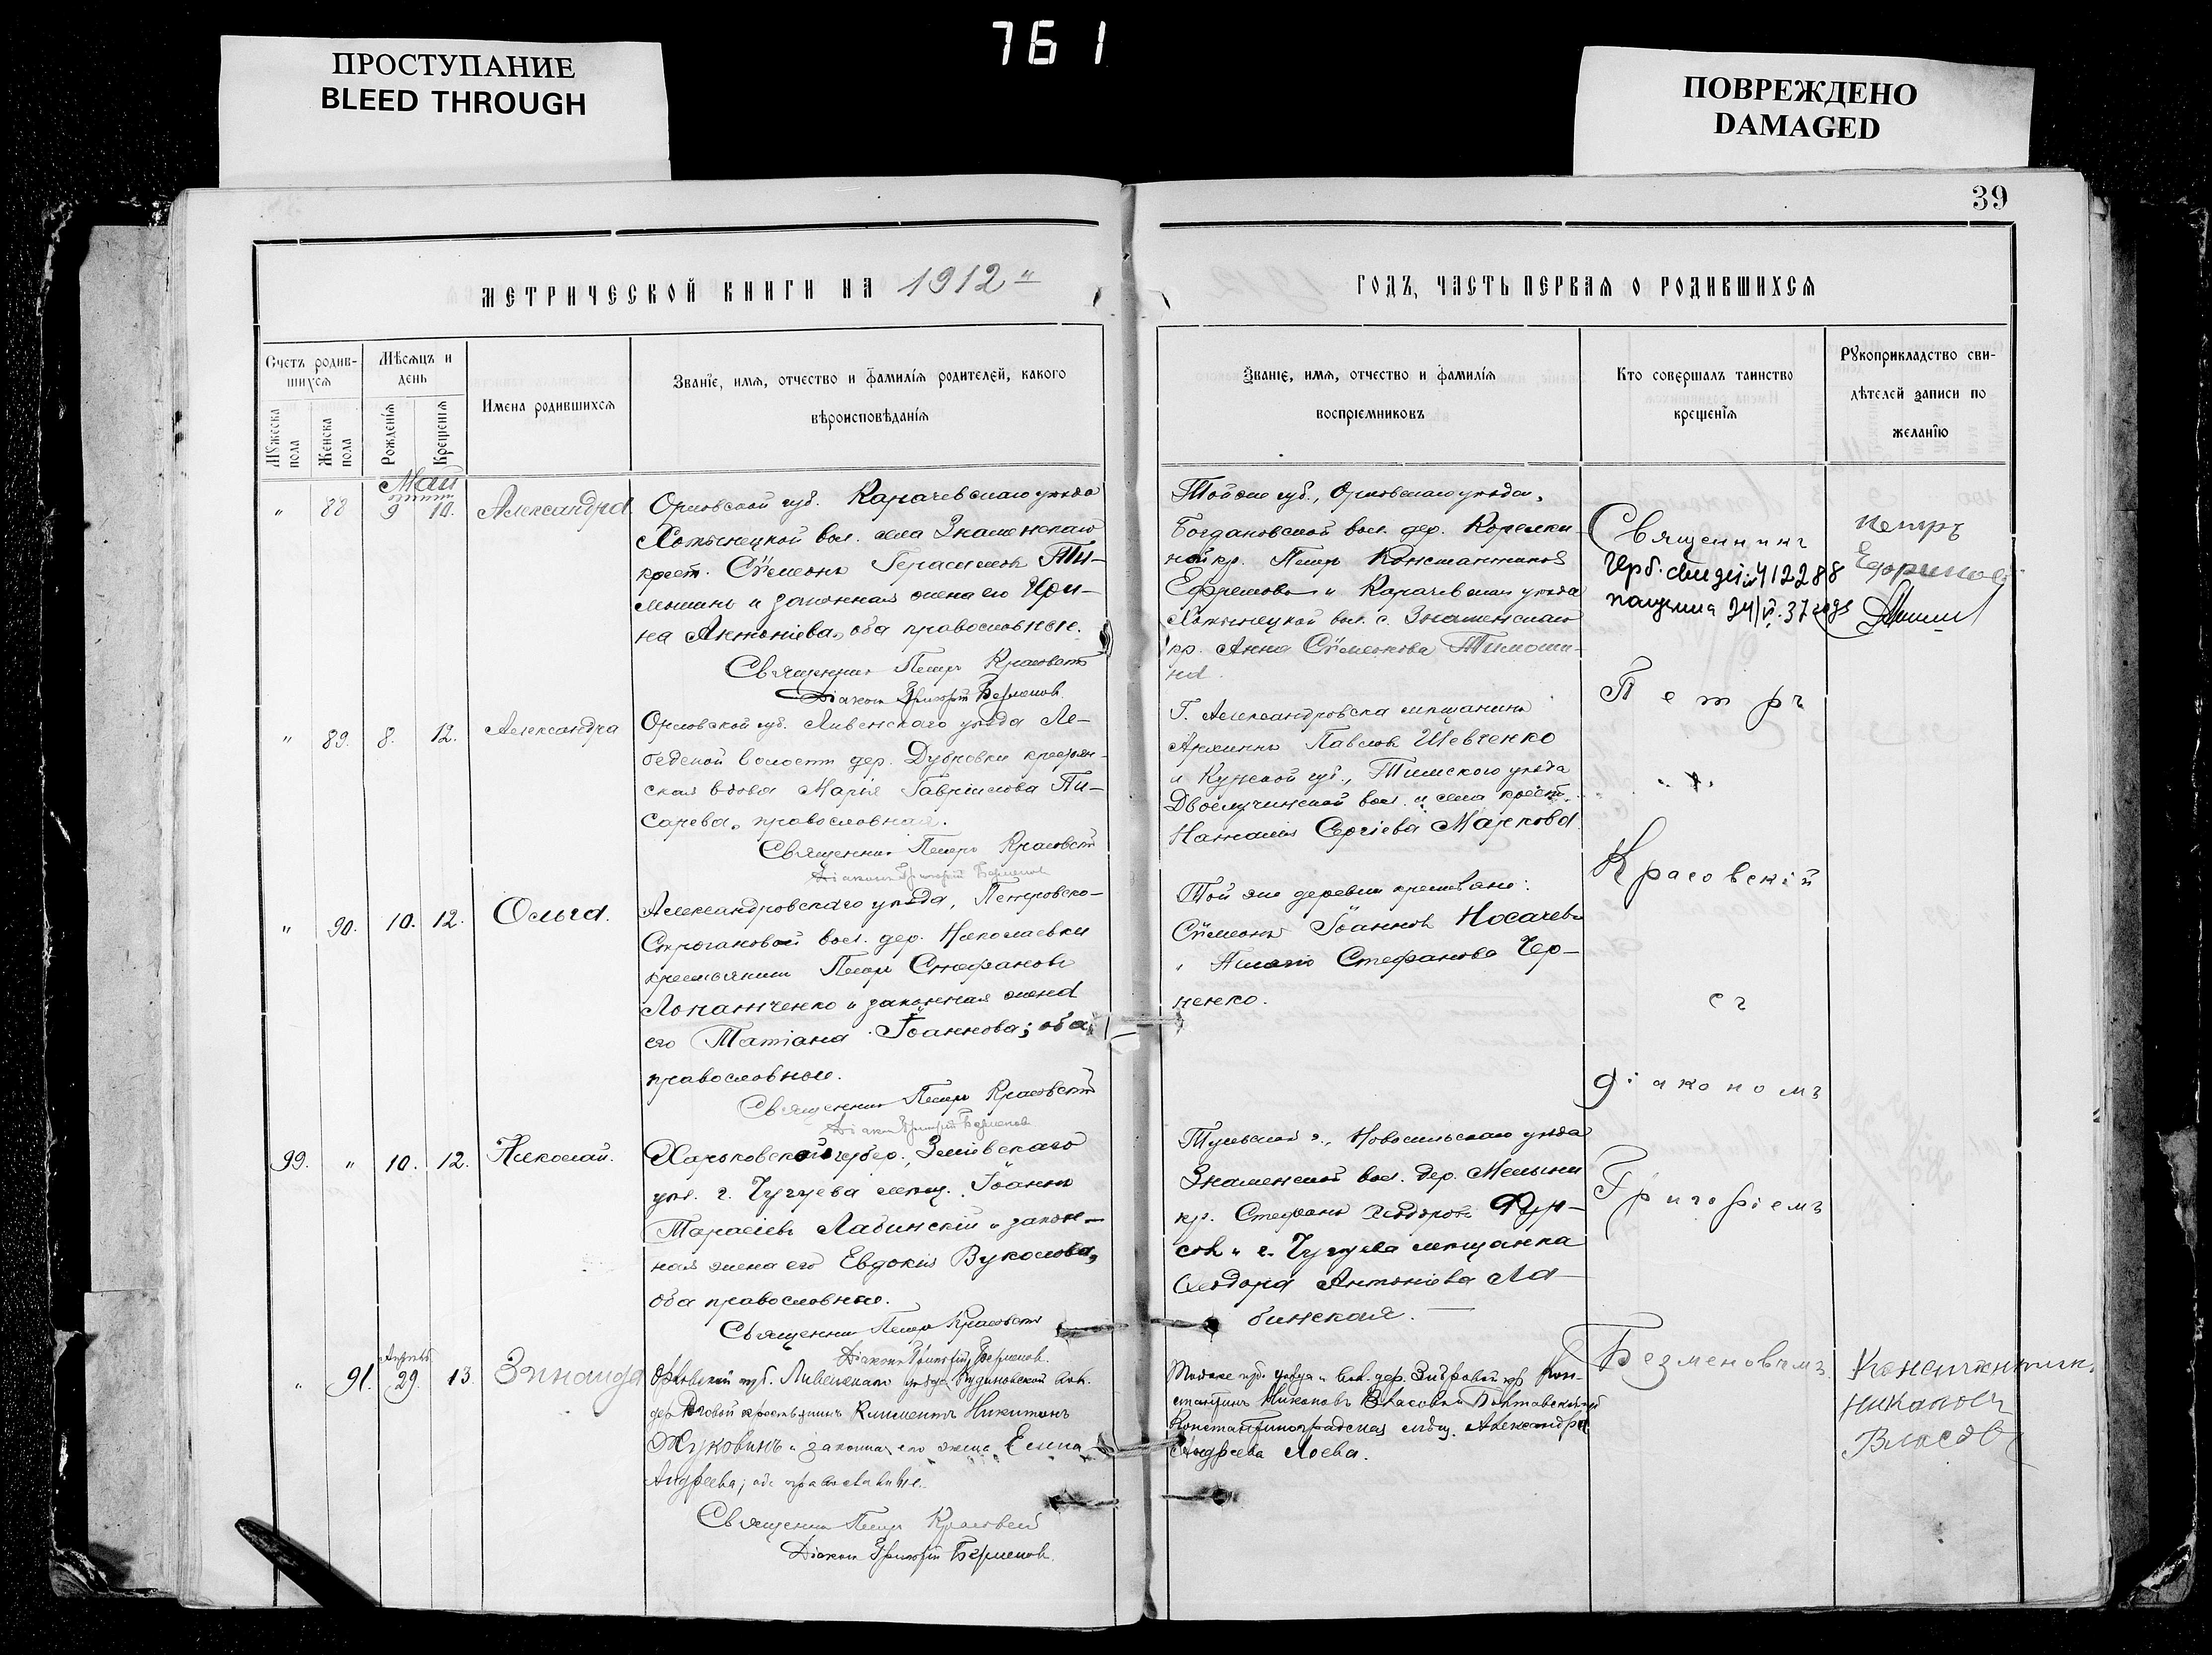 761
ПРОСТУПАНИЕ
BLEED THROUGH
ПОВРЕЖДЕНО
DAMAGED
39
МЕТРИЧЕСКОЙ КНИГИ НА 1912й
ГОДЪ, ЧАСТЬ ПЕРВАЯ О РОДИВШИХСЯ
Счетъ родив-
шихся
Мѣсяцъ и
день
Мужеска
пола
Женска
пола
Рожденія
Крещенія
Имена родившихся
Званіе, имя, отчество и фамилія родителей, какого
вѣроисповѣданія
Званіе, имя, отчество и фамилія
воспріемниковъ
Кто совершалъ таинство
крещенія
Рукоприкладство сви-
дѣтелей записи по
желанію
Май
" 88 9 10. Александра
Орловской губ. Карачевскаго уѣзда
Хотынецкой вол. села Знаменскаго
крест. Сѵмеонъ Герасимовъ Ти-
мошинъ и законная жена его Ири-
на Антоніева, оба православные.
Священникъ Петръ Красовскій
Діаконъ Григорій Безменовъ.
Той же губ., Орловскаго уѣзда,
Богдановской вол. дер.
кр. Петръ Константиновъ
Ефремовъ и Карачевскаго уѣзда
Хотынецкой вол. с. Знаменскаго
кр. Анна Сѵмеонова Тимоши-
на.
Священникъ
412288
24/V. 37 года
Петръ
" 89. 8. 12. Александра
Орловской губ. Ливенскаго уѣзда Ле-
бедской волости дер. Дубровки крестьян-
ская вдова Марія Гавріилова Пи-
сарева, православная.
Священникъ Петръ Красовскій
Діаконъ Григорій Безменовъ
Г. Александровска мѣщанинъ
Павловъ Шевченко
и Курской губ., Тимскаго уѣзда
Двоелучинской вол. и села крест.
Наталія Сергіева Маркова
Петръ
Красовскій
" 90. 10. 12. Ольга.
Александровскаго уѣзда, Петровско-
Строгановой вол. дер. Николаевки
крестьянинъ Петръ Стефановъ
Лопатченко и законная жена
его Татіана Іоаннова; оба
православные.
Священникъ Петръ Красовскій
Діаконъ Григорій Безменовъ
Той же деревни крестьяне:
Сѵмеонъ Іоанновъ Носачевъ
и Стефанова Чер-
ненко.
съ
діакономъ
99. " 10. 12. Николай.
Харьковской губер., Зміевскаго
уѣз. г. Чугуева мѣщ. Іоаннъ
Тарасіевъ Лабинскій и закон-
ная жена его Евдокія Вуколова,
оба православные.
Священникъ Петръ Красовскій
Діаконъ Григорій Безменовъ.
Тульской г., Новосильскаго уѣзда
Знаменской вол. дер.
кр. Стефанъ Ѳеодоровъ Фур-
совъ и г. Чугуева мѣщанка
Ѳеодора Антоніева Ла-
бинская.
Григоріемъ
Апрѣль
" 91. 29. 13. Зинаида
Орловской губ. Ливенскаго уѣзда
крестьянинъ Климентъ Никитинъ
Жуковинъ и законная его жена Елена
Андреева; оба православные.
Священникъ Петръ Красовскій
Діаконъ Григорій Безменовъ.
Той же губ. уѣзда и вол. дер. кр. Кон-
стантинъ Никоновъ Власовъ и Полтавской губ
Константиноградская мѣщ. Александра
Андреева Лоева.
Безменовымъ
Константинъ
Никоновъ
Власовъ